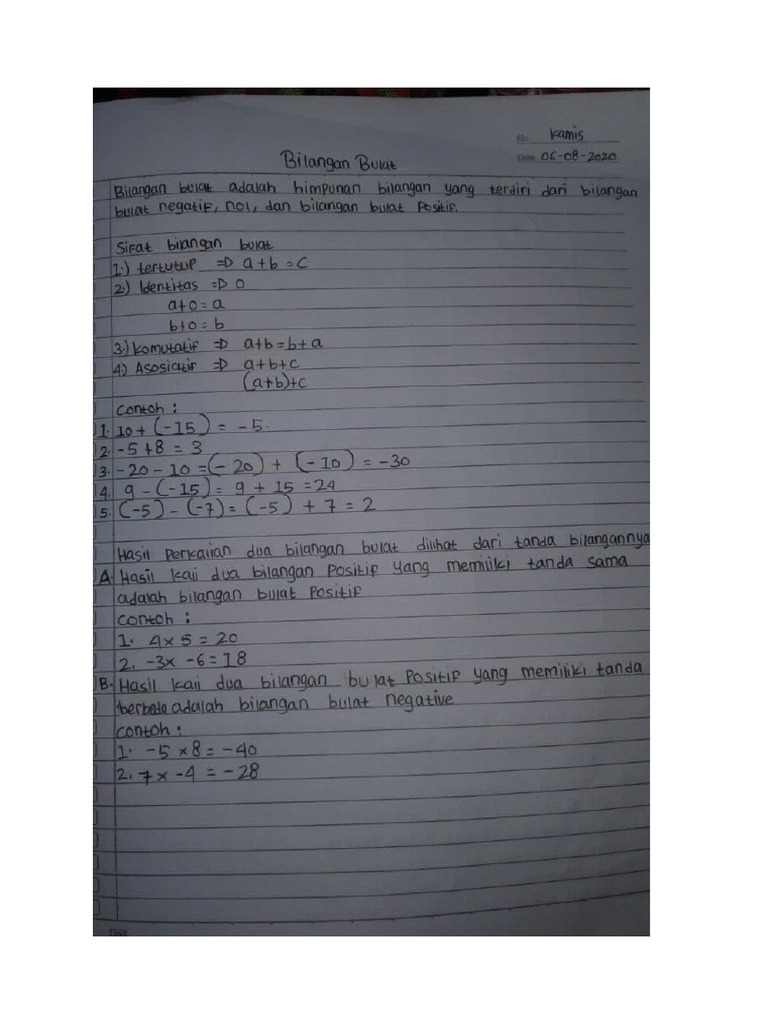 No. Kamis
Date 06-08-2020
Bilangan Bulat
Bilangan bulat adalah himpunan bilangan yang terdiri dari bilangan
bulat negatif, nol, dan bilangan bulat positif.
Sifat bilangan bulat
1.) tertutup => a+b = c
2.) Identitas => 0
a+0 = a
b+0 = b
3.) Komutatif => a+b = b+a
4) Asosiatif => a+b+c
(a+b)+c
Contoh :
1. 10 + (-15) = -5.
2. -5 + 8 = 3
3. -20 - 10 = (-20) + (-10) = -30
4. 9 - (-15) = 9 + 15 = 24
5. (-5) - (-7) = (-5) + 7 = 2
Hasil perkalian dua bilangan bulat dilihat dari tanda bilangannya
A. Hasil kali dua bilangan positif yang memiliki tanda sama
adalah bilangan bulat positif
Contoh :
1. 4 x 5 = 20
2. -3 x -6 = 18
B. Hasil kali dua bilangan bulat positif yang memiliki tanda
berbeda adalah bilangan bulat negative
Contoh :
1. -5 x 8 = -40
2. 7 x -4 = -28